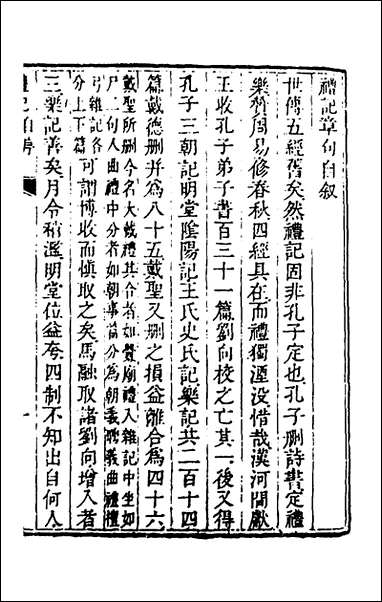 禮記章句自叙
世傳五經舊矣然禮記固非孔子定也孔子刪詩書定禮
樂贊周易修春秋四經具在而禮獨湮没惜哉漢河間獻
王收孔子弟子書百三十一篇劉向校之亡其一後又得
孔子三朝記明堂陰陽記王氏史氏記樂記共二百十四
篇戴德刪并為八十五戴聖又刪之損益離合為四十六
戴聖所刪今名大戴禮其合者如釁廟禮入雜記中坐如
尸二句入曲禮中分者如朝事篇分為朝義聘義曲禮檀
弓雜記各
分上下篇
可謂博收而慎取之矣馬融取諸劉向增入者
三樂記善矣月令稍滙明堂位益夸四制不知出自何人